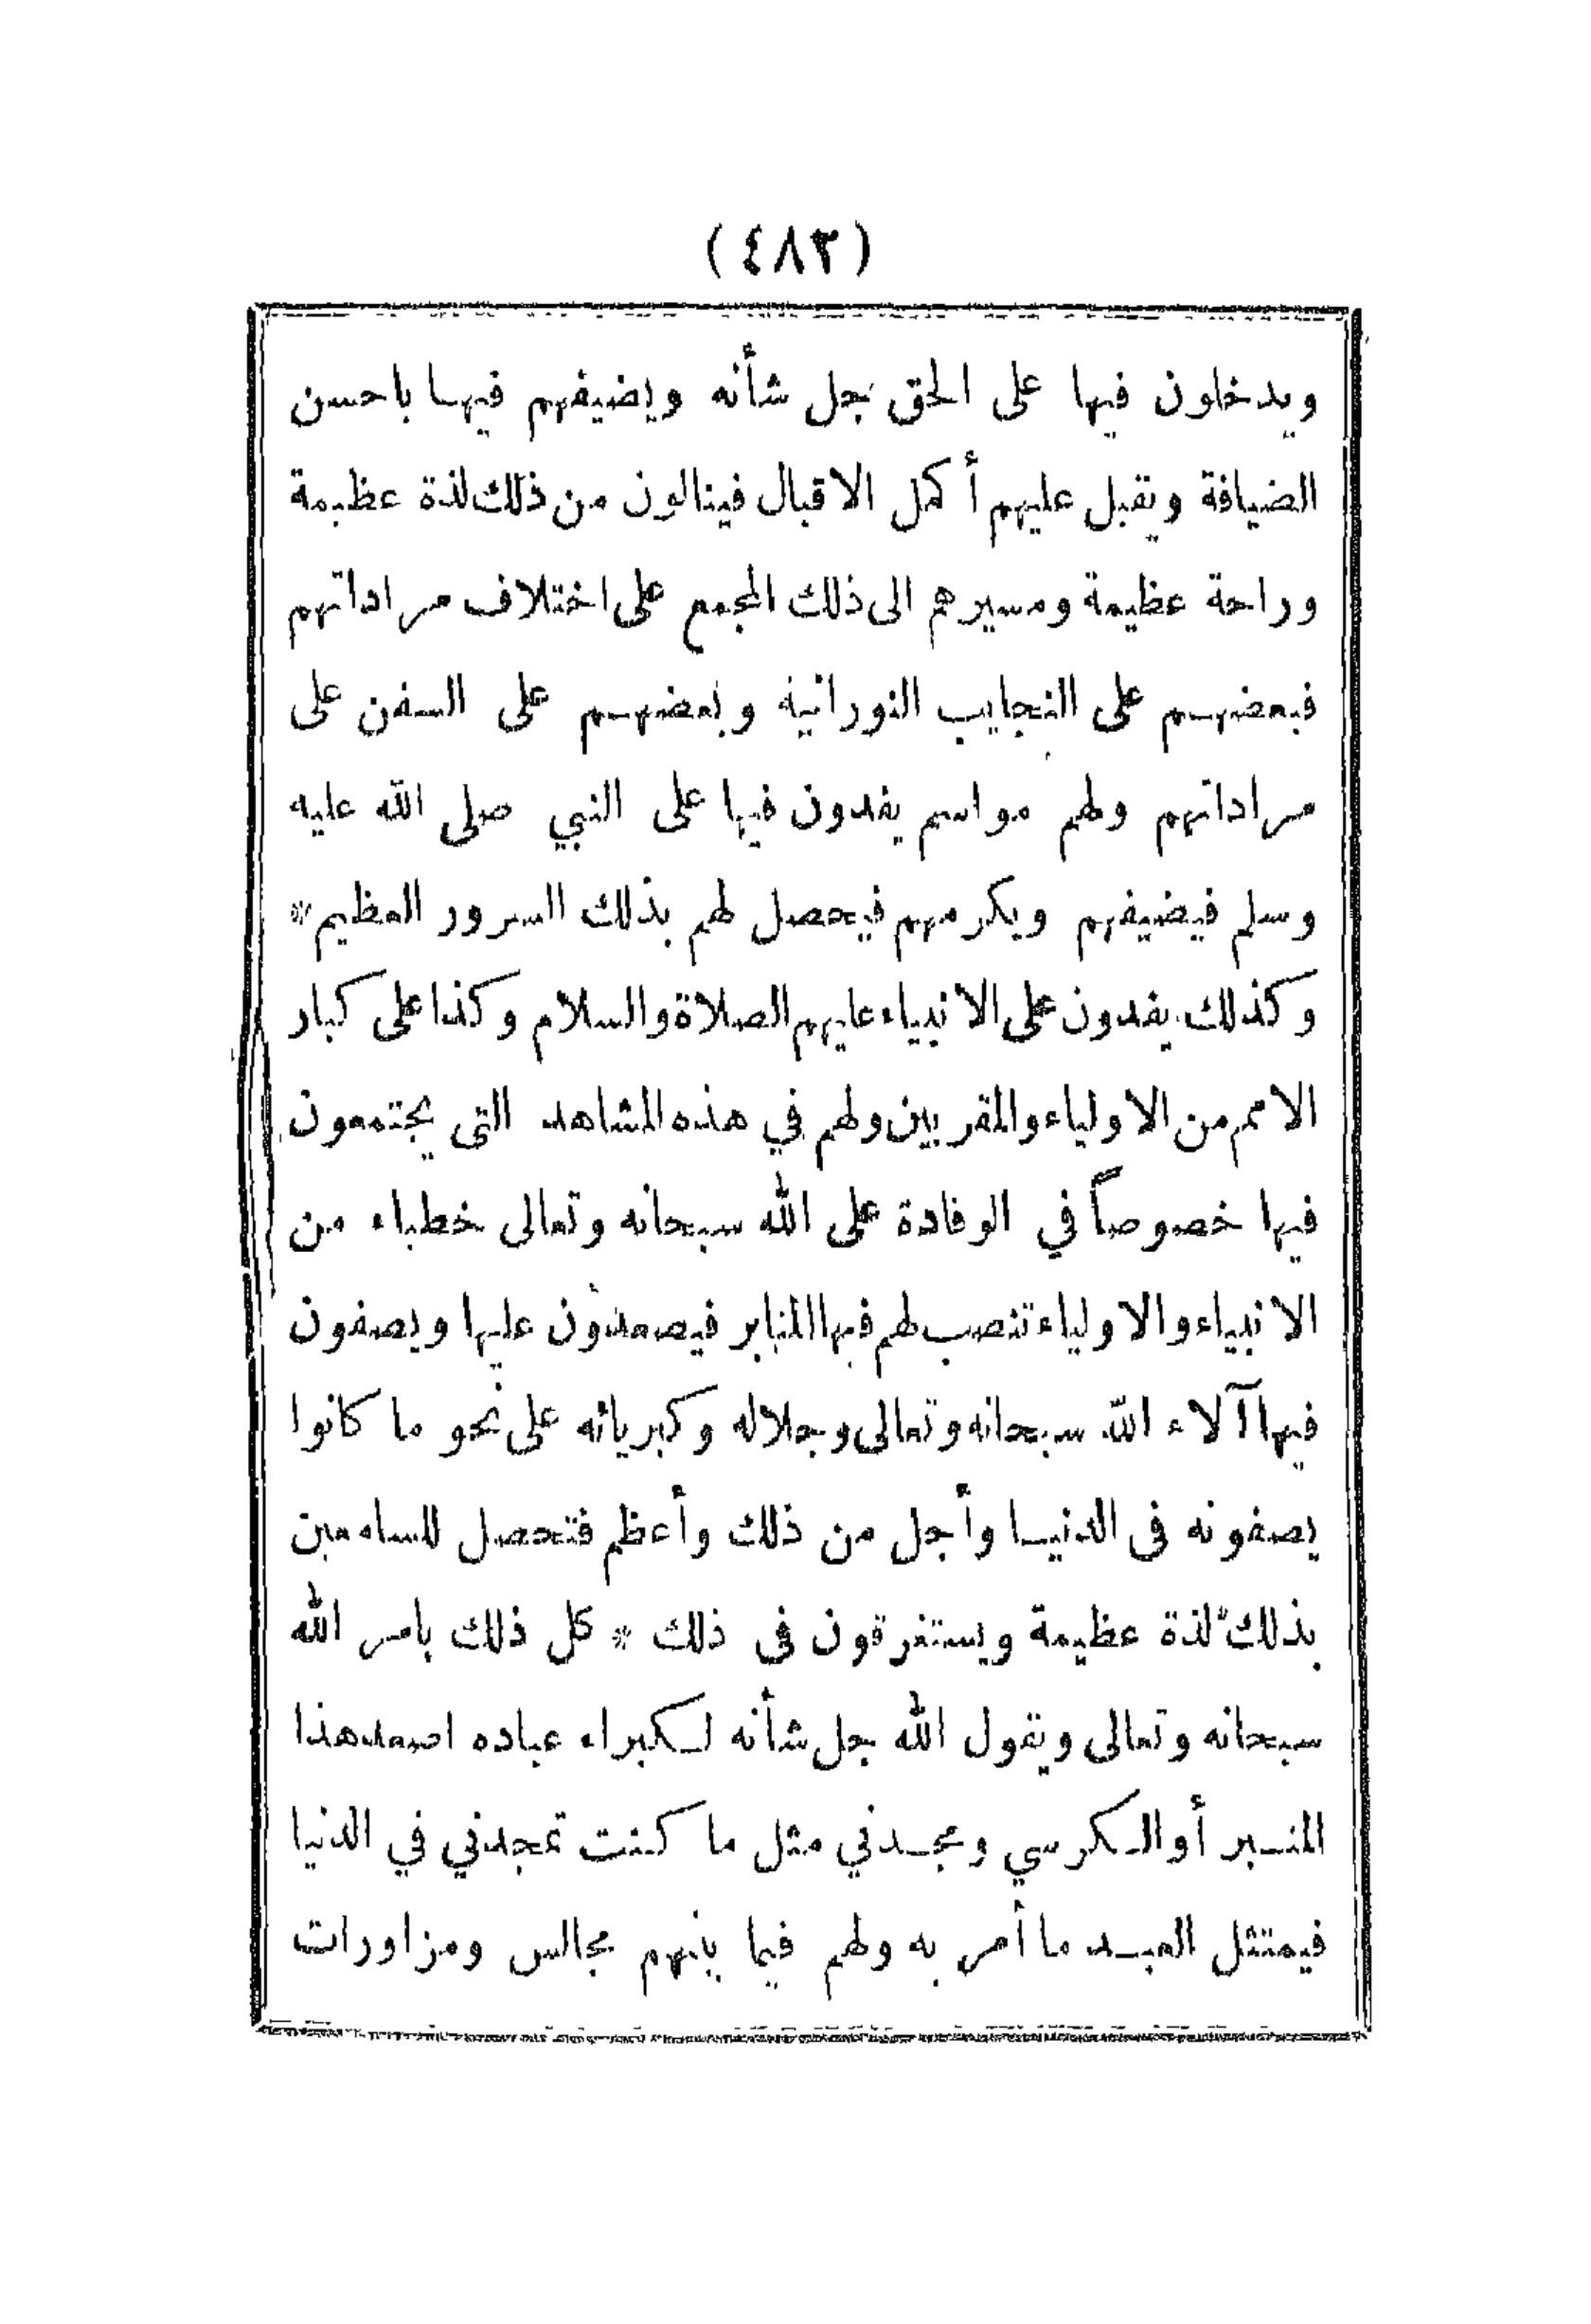 (٤٨٣)
ويدخلون فيها على الحق جل شأنه ويضيفهم فيها باحسن
الضيافة ويقبل عليهم أكمل الاقبال فينالون من ذلك لذة عظيمة
وراحة عظيمة ومسيرهم الى ذلك المجمع على اختلاف مراداتهم
فبعضهم على النجايب النورانية وبعضهم على السفن على
مراداتهم ولهم مواسم يفدون فيها على النبي صلى الله عليه
وسلم فيضيفهم ويكرمهم فيحصل لهم بذلك السرور العظيم *
وكذلك يفدون على الانبياء عليهم الصلاة والسلام وكذا على كبار
الامم من الاولياء والمقربين ولهم في هذه المشاهد التي يجتمعون
فيها خصوصاً في الوفادة على الله سبحانه وتعالى خطباء من
الانبياء والاولياء تنصب لهم فيها المنابر فيصعدون عليها ويصفون
فيها آلاء الله سبحانه وتعالى وجلاله وكبريائه على نحو ما كانوا
يصفونه فى الدنيا وأجل من ذلك وأعظم فتحصل للسامعين
بذلك لذة عظيمة ويستغرقون فى ذلك * كل ذلك بامر الله
سبحانه وتعالى ويقول الله جل شأنه لكبراء عباده اصعد هذا
المنبر أو الكرسي ومجدني مثل ما كنت تمجدني في الدنيا
فيمتثل العبد ما أمر به ولهم فيما بينهم مجالس ومزاورات